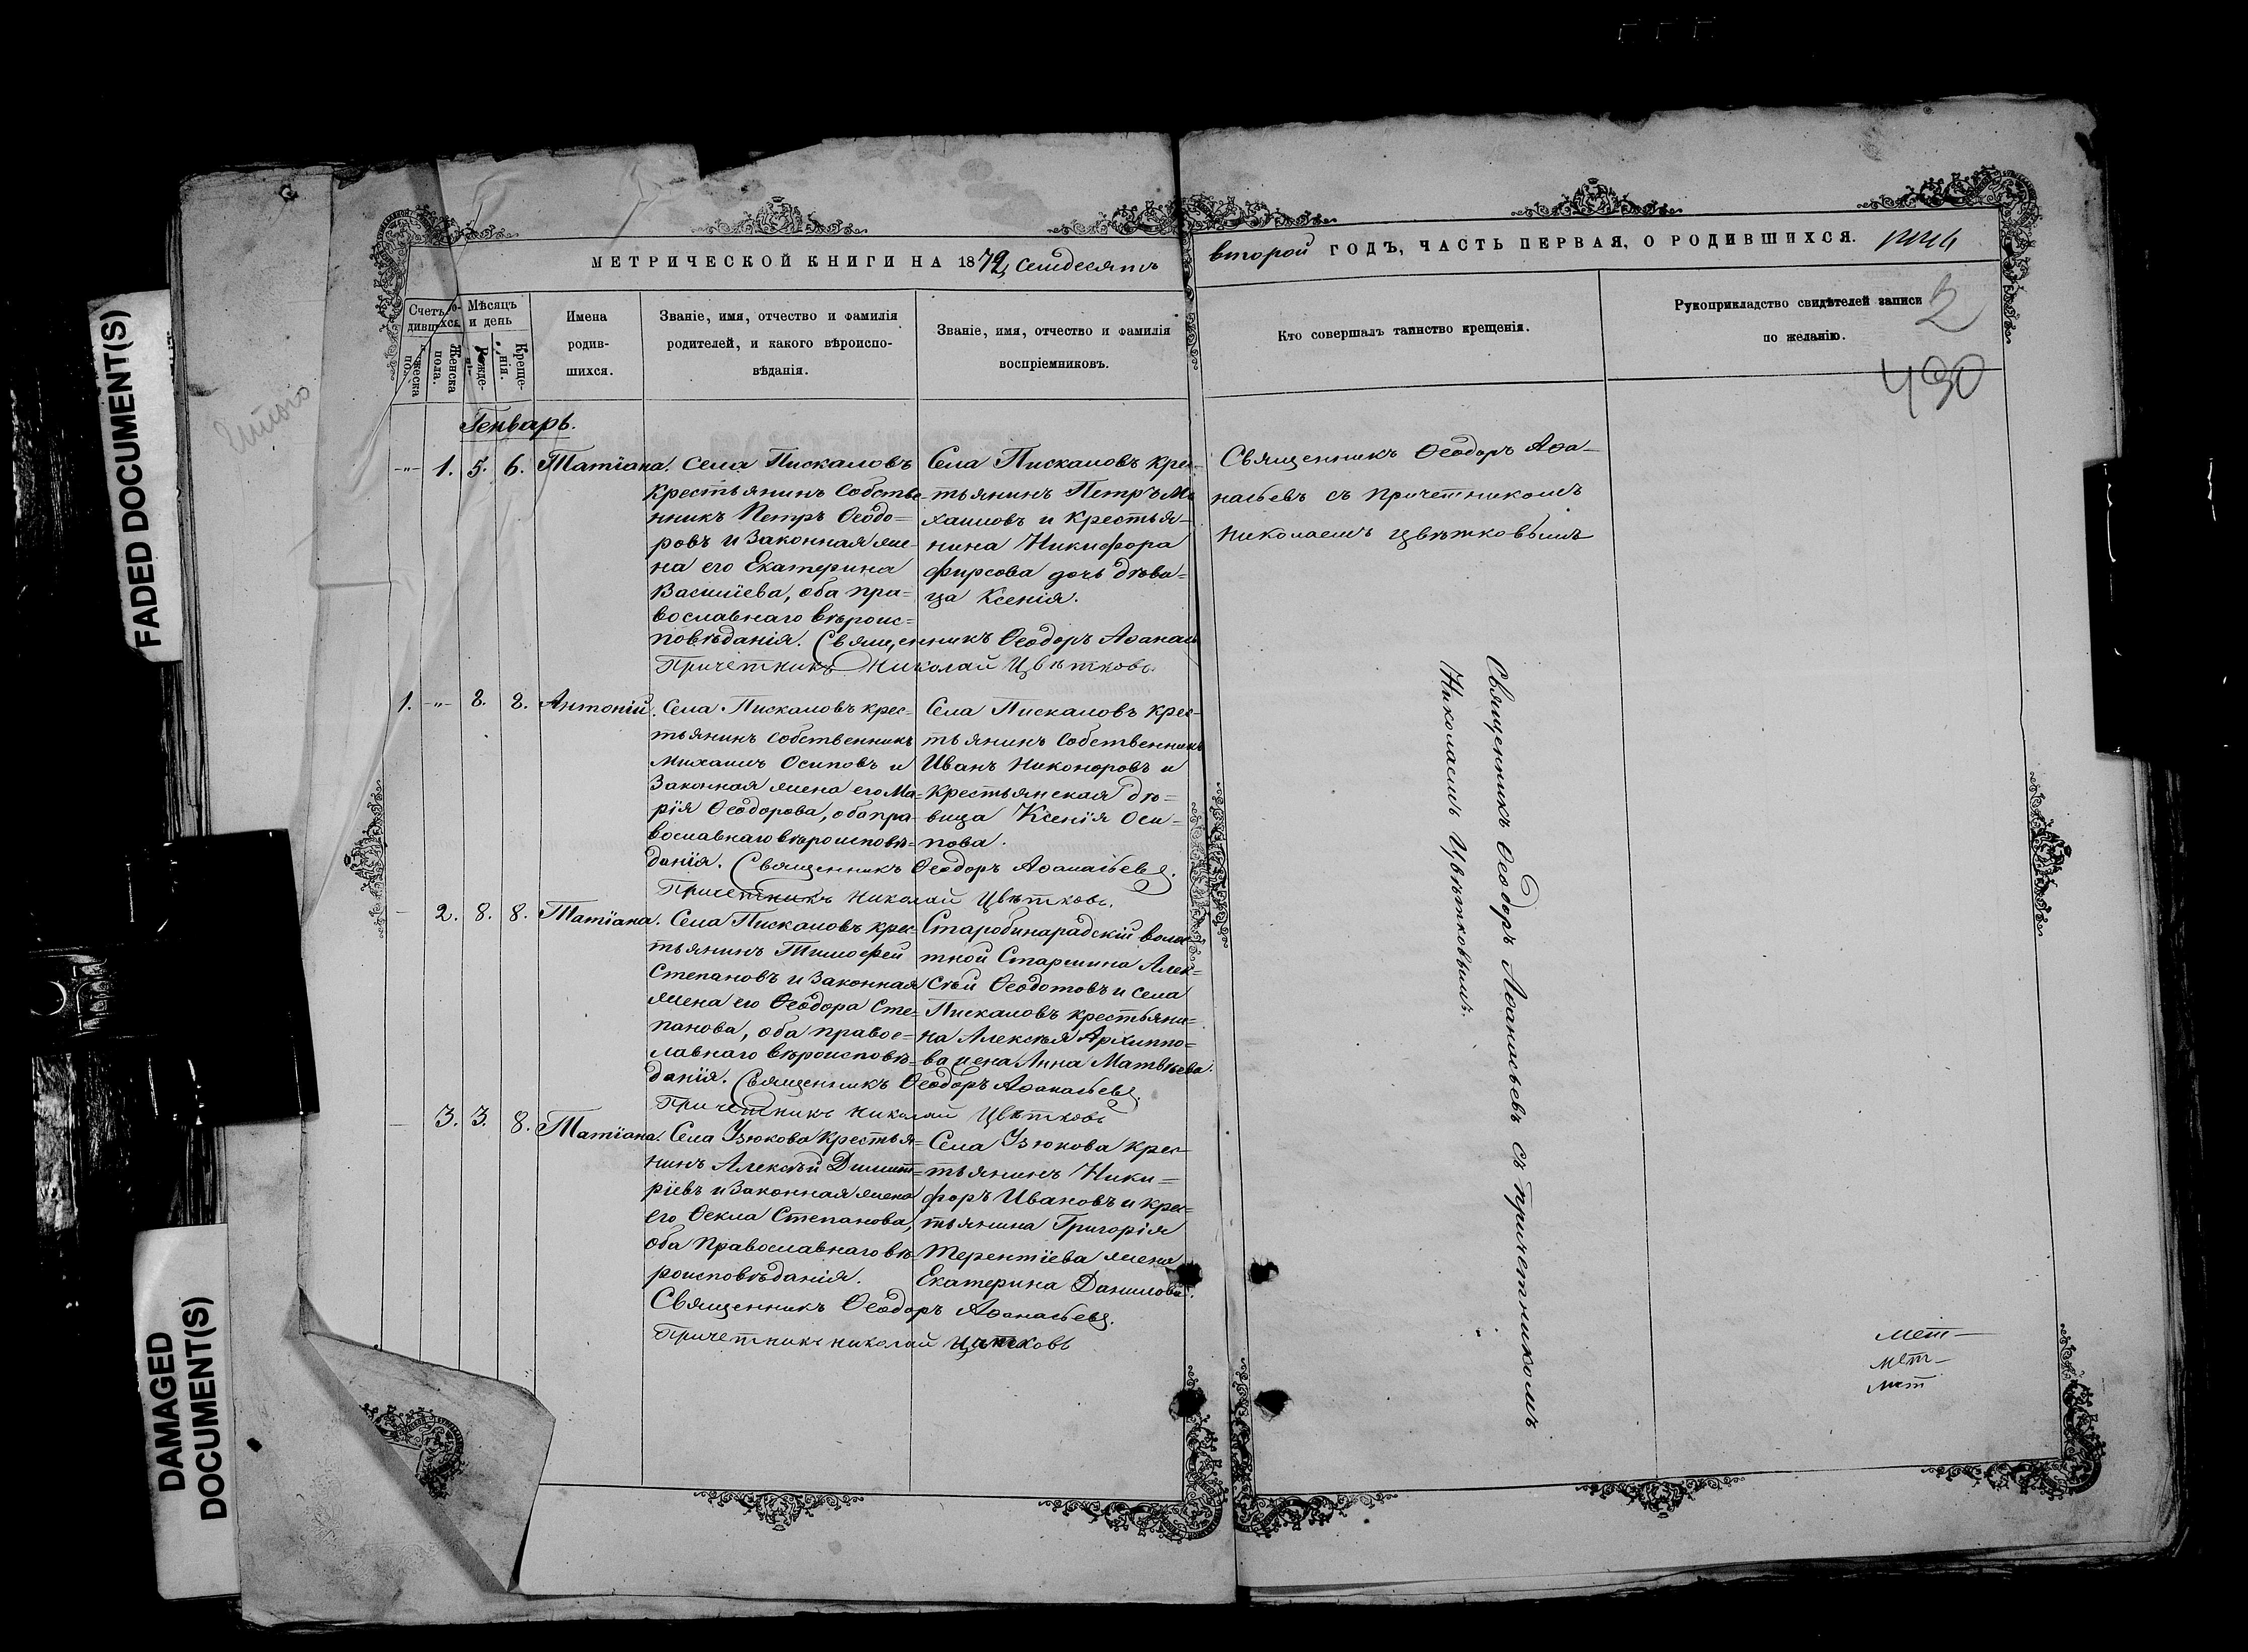 FADED DOCUMENT(S)
DAMAGED
DOCUMENT(S)
МЕТРИЧЕСКОЙ КНИГИ НА 1872, семдесятъ
второй ГОДЪ, ЧАСТЬ ПЕРВАЯ, О РОДИВШИХСЯ.
2
490
Мѣсяцъ
и день
Женска
пола.
Креще-
нія.
Имена
родив-
шихся.
Званіе, имя, отчество и фамилія
родителей, и какого вѣроиспо-
вѣданія.
Званіе, имя, отчество и фамилія
воспріемниковъ.
Кто совершалъ таинство крещенія.
Рукоприкладство свидѣтелей записи
по желанію.
Генварь.
-"- 1. 5. 6. Татіана.
Села Пискаловъ
крестьянинъ собстве-
нникъ Петръ Ѳеодо=
ровъ и законная же-
на его Екатерина
Василіева, оба пра=
вославнаго вѣроис=
повѣданія. Священникъ Ѳеодоръ Аѳанась
Причетникъ Николай Цвѣтковъ.
Села Пискаловъ крес-
тьянинъ Петръ Ми
хаиловъ и крестья-
нина Никифора
Фирсова дочь дѣви=
ца Ксенія.
Священникъ Ѳеодоръ Аѳа-
насьевъ съ причетникомъ
Николаемъ Цвѣтковымъ
1. -"- 8. 8. Антоній.
Села Пискаловъ крес=
тьянинъ собственникъ
Михаилъ Осиповъ и
законная жена его Ма=
рія Ѳеодорова, оба пра-
вославнаго вѣроисповѣ=
данія. Священникъ Ѳеодоръ Аѳанасьевъ.
Причетникъ Николай Цвѣтковъ.
Села Пискаловъ крес-
тьянинъ собственникъ
Иванъ Никоноровъ и
крестьянская дѣ=
вица Ксенія Оси=
пова.
Священникъ Ѳеодоръ Аѳанасьевъ съ причетникомъ
Николаемъ Цвѣтковымъ.
- 2. 8. 8. Татіана.
Села Пискаловъ крес-
тьянинъ Тимофей
Степановъ и законная
жена его Ѳеодора Сте=
панова, оба правос=
лавнаго вѣроисповѣ=
данія. Священникъ Ѳеодоръ Аѳанасьевъ.
Причетникъ Николай Цвѣтковъ
Старобинарадскій волос
тной Старшина Алек=
сѣй Ѳеодотовъ и села
Пискаловъ крестьяни=
на Алексѣя Архиппо=
ва жена Анна Матвѣева.
- 3. 3. 8. Татіана.
Села Узюкова крестья=
нинъ Алексѣй Димит=
ріевъ и законная жена
его Ѳекла Степанова,
оба православнаго вѣ=
роисповѣданія.
Священникъ Ѳеодоръ Аѳанасьевъ.
Причетникъ Николай Цвѣтковъ
Села Узюкова крес-
тьянинъ Ники=
форъ Ивановъ и крес=
тьянина Григорія
Терентіева жена
Екатерина Данилова.
мет-
мет-
мет